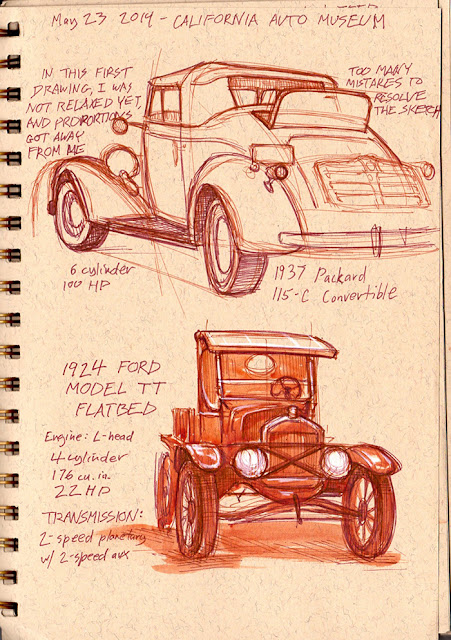 May 23 2014 - CALIFORNIA AUTO MUSEUM
IN THIS FIRST
DRAWING, I WAS
NOT RELAXED YET,
AND PROPORTIONS
GOT AWAY
FROM ME
TOO MANY
MISTAKES TO
RESOLVE
THE SKETCH
6 cylinder
100 HP
1937 Packard
115-C Convertible
1924 FORD
MODEL TT
FLATBED
Engine: L-head
4 cylinder
176 cu. in.
22 HP
TRANSMISSION:
2-speed planetary
w/ 2-speed aux